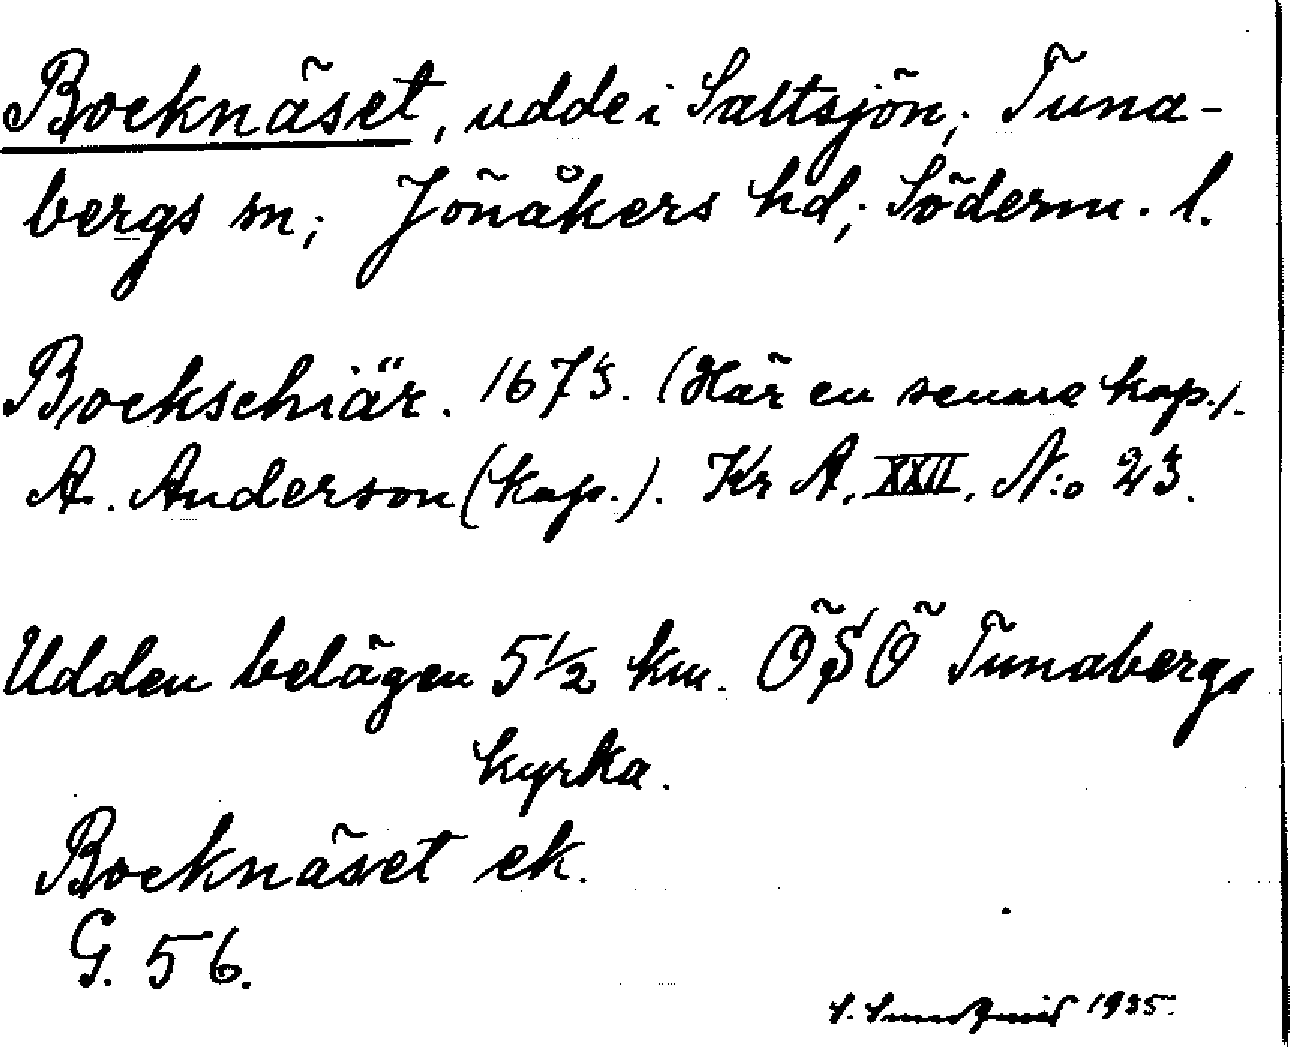 Bocknäset, udde i Saltsjön; Tuna-
bergs sn; Jönåkers hd; Söderm. l.
Bockschiär. 1675. (Här en senare kop.).
A. Anderson (kop.). Kr A. XXII. N:o 23.
Udden belägen 5 1/2 km. ÖSÖ Tunabergs
kyrka.
Bocknäset ek.
G. 56.
S. 1935.